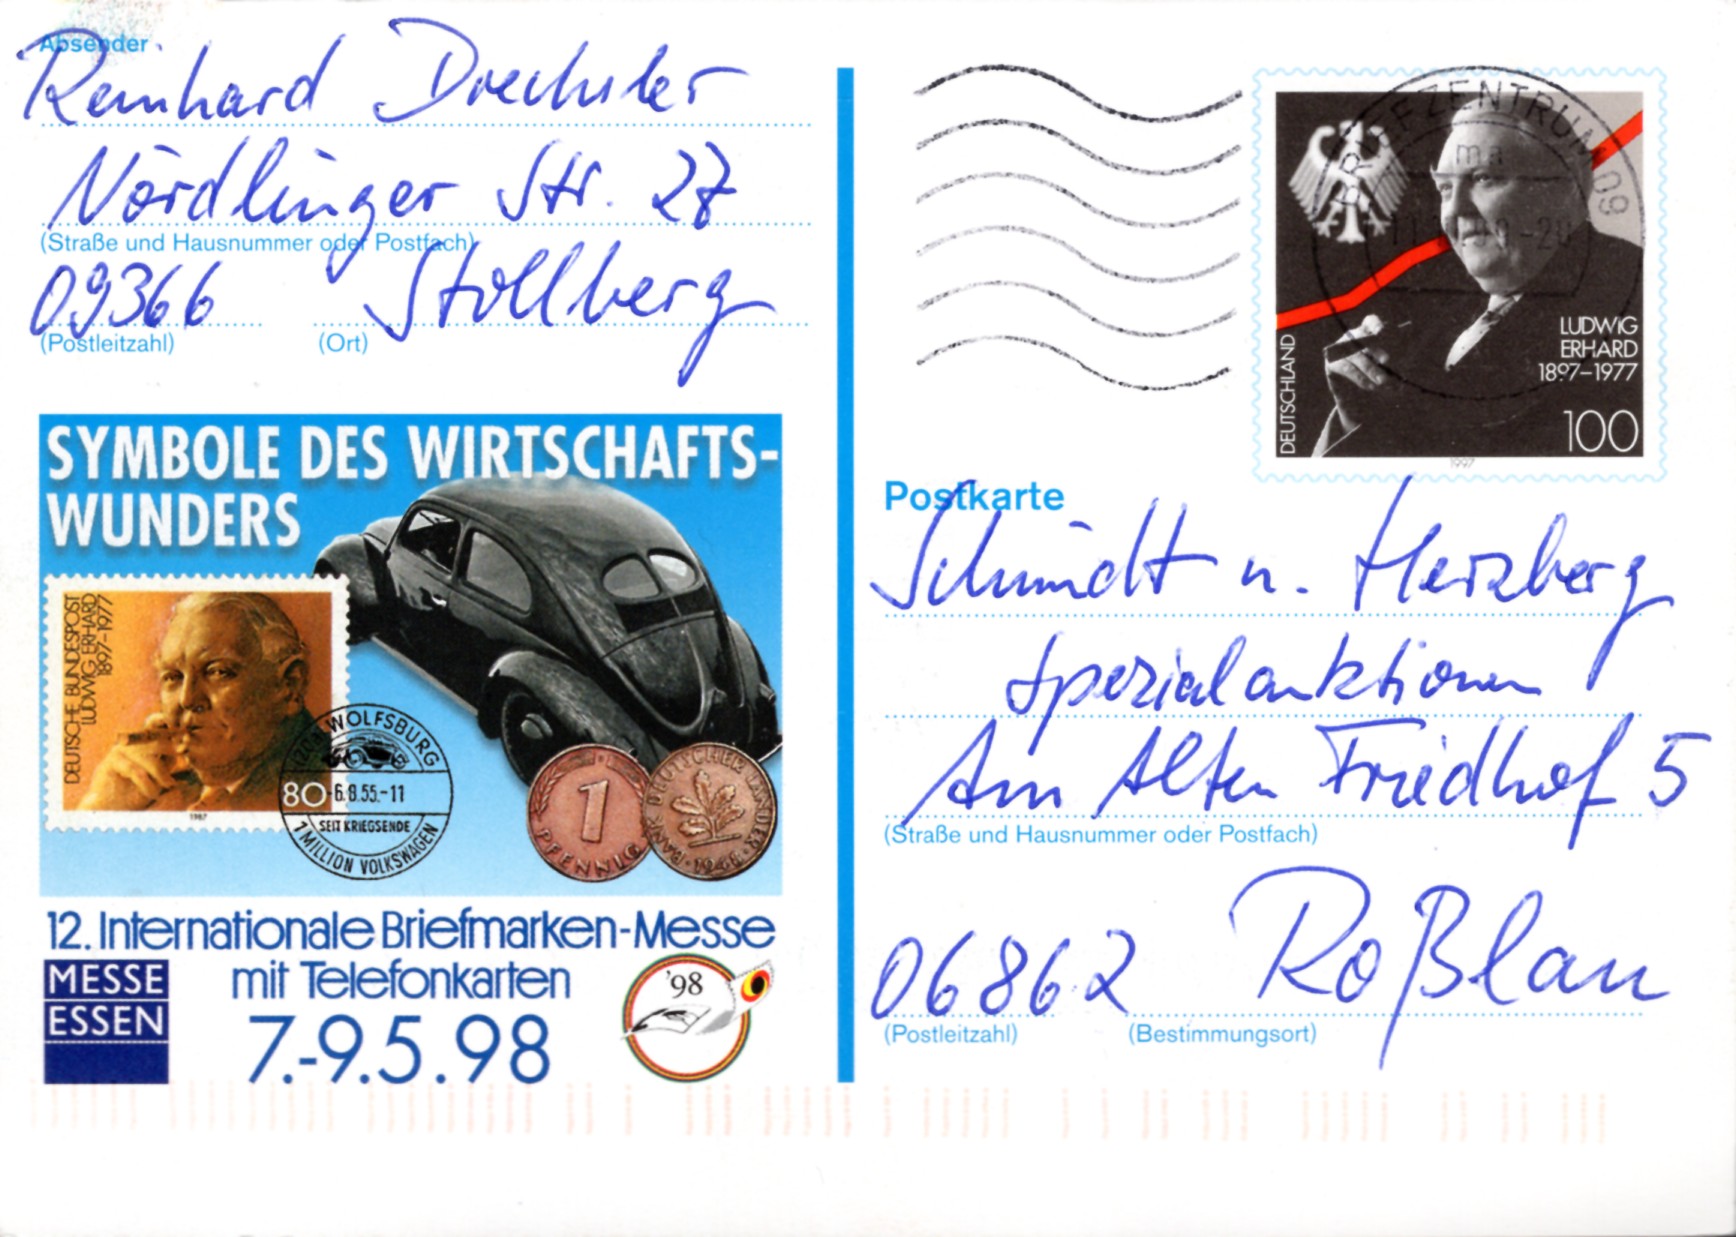 Absender
Reinhard Drechsler
Nördlinger Str. 27
(Straße und Hausnummer oder Postfach)
09366 Stollberg
(Postleitzahl) (Ort)
SYMBOLE DES WIRTSCHAFTS-
WUNDERS
DEUTSCHE BUNDESPOST
LUDWIG ERHARD
1897-1977
80
1987
WOLFSBURG
-6.8.55.-11
SEIT KRIEGSENDE
1 MILLION VOLKSWAGEN
1
PFENNIG
BANK DEUTSCHER LÄNDER
1948
12. Internationale Briefmarken-Messe
mit Telefonkarten
7.-9.5.98
MESSE
ESSEN
'98
BRIEFZENTRUM 09
ma
DEUTSCHLAND
LUDWIG
ERHARD
1897-1977
100
1997
Postkarte
Schmidt u. Herzberg
Spezialauktionen
Am Alten Friedhof 5
(Straße und Hausnummer oder Postfach)
06862 Roßlau
(Postleitzahl) (Bestimmungsort)